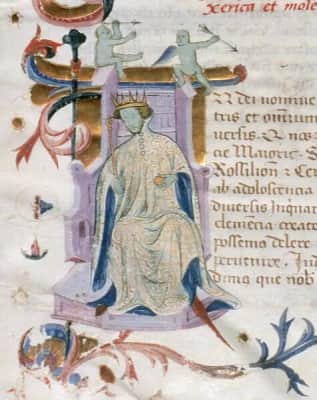 xerica et mole
N dei nomine
tris et omnium
versis. Q nos
cie Maioric. S
Rossilion & Cer
ab adolescencia
diversis
clemencia create
possemo delere
pervenire. In
dimo que nob